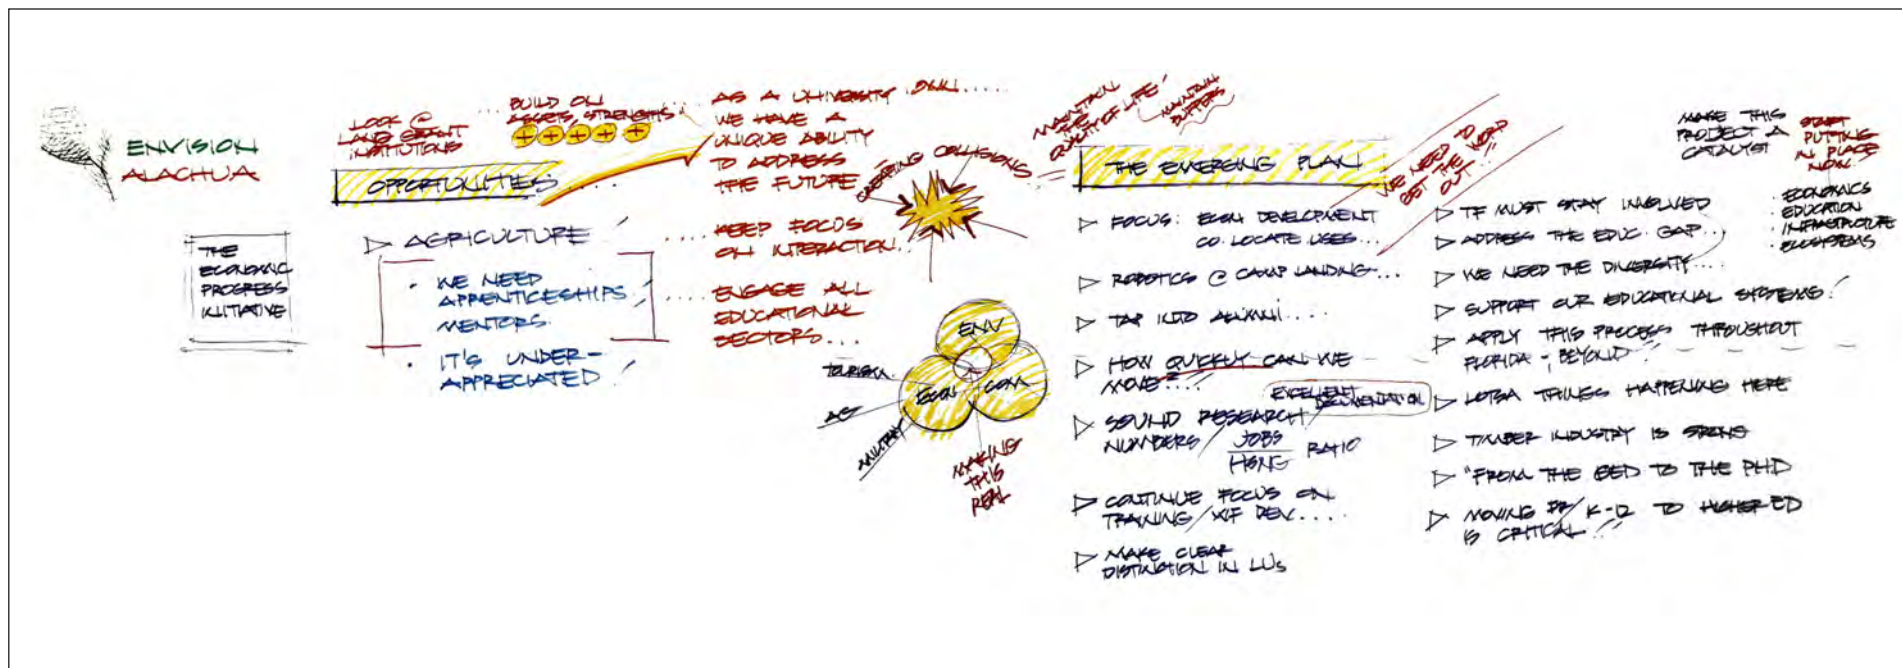 ENVISION
ALACHUA
THE
ECONOMIC
PROGRESS
INITIATIVE
LOOK @
LAND GRANT
INSTITUTIONS
... BUILD ON
ASSETS, STRENGTHS
+ + + + +
OPPORTUNITIES....
▷ AGRICULTURE!
• WE NEED
APPRENTICESHIPS!
MENTORS.
• IT'S UNDER-
APPRECIATED!
... AS A UNIVERSITY TOWN.....
WE HAVE A
UNIQUE ABILITY
TO ADDRESS
THE FUTURE
.... KEEP FOCUS
ON INTERACTION...
.... ENGAGE ALL
EDUCATIONAL
SECTORS...
CREATING COLLISIONS....
ENV
ECON
COM
TOURISM
AG
MILITARY
MAKING
THIS
REAL
MAINTAIN
THE
QUALITY OF LIFE!
MAINTAIN
BUFFERS
THE EMERGING PLAN
WE NEED TO
GET THE WORD
OUT!!
▷ FOCUS: ECON DEVELOPMENT
CO. LOCATE USES...
▷ ROBOTICS @ CAMP LANDING...
▷ TAP INTO ALUMNI....
▷ HOW QUICKLY CAN WE
MOVE?...
▷ SOUND RESEARCH/
NUMBERS/
EXCELLENT
DOCUMENTATION
JOBS
HSNG RATIO
▷ CONTINUE FOCUS ON
TRAINING/WF DEV....
▷ MAKE CLEAR
DISTINCTION IN LUs
▷ TF MUST STAY INVOLVED
▷ ADDRESS THE EDUC. GAP...
▷ WE NEED THE DIVERSITY....
▷ SUPPORT OUR EDUCATIONAL SYSTEMS!
▷ APPLY THIS PROCESS THROUGHOUT
FLORIDA - BEYOND!
▷ LOTSA THINGS HAPPENING HERE
▷ TIMBER INDUSTRY IS STRONG
▷ "FROM THE GED TO THE PHD
▷ MOVING K-12 TO HIGHER ED
IS CRITICAL!!
MAKE THIS
PROJECT A
CATALYST
START
PUTTING
IN PLACE
NOW...
• ECONOMICS
• EDUCATION
• INFRASTRUCTURE
• ECOSYSTEMS